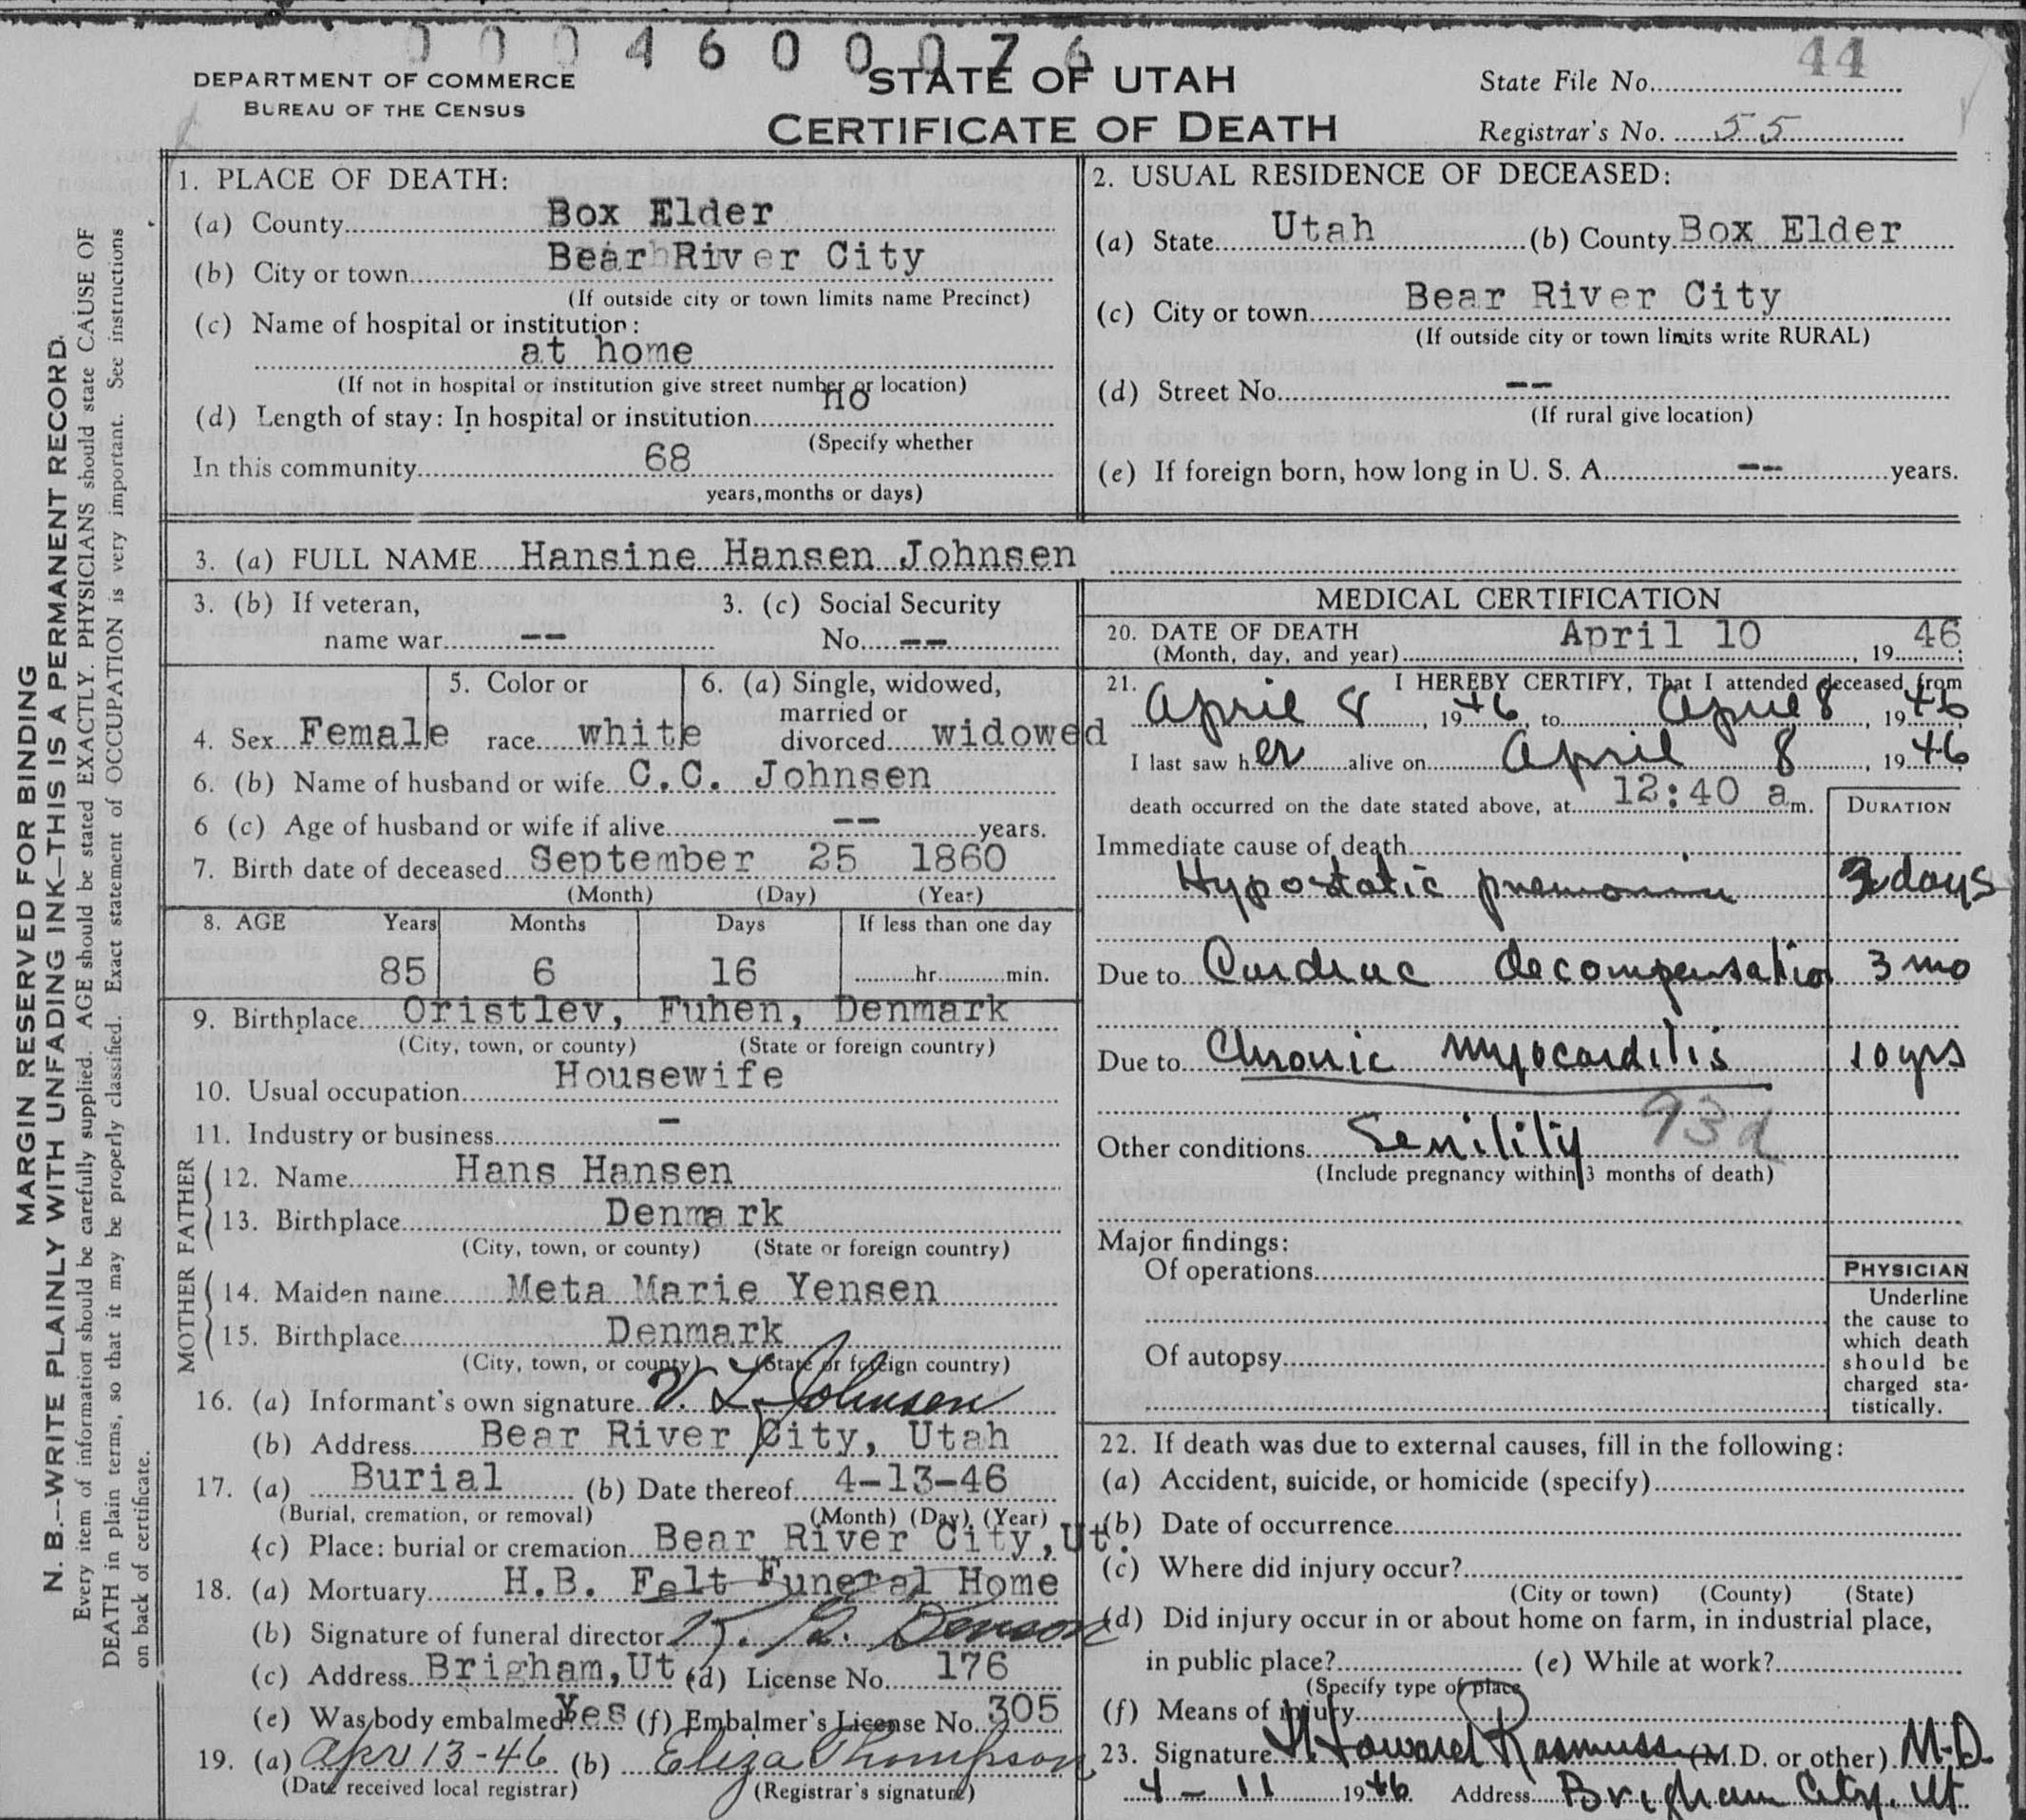 0 0 0 4 6 0 0 0 7 6
44
DEPARTMENT OF COMMERCE
BUREAU OF THE CENSUS
STATE OF UTAH
CERTIFICATE OF DEATH
State File No.
Registrar's No. 55
MARGIN RESERVED FOR BINDING
N. B.—WRITE PLAINLY WITH UNFADING INK—THIS IS A PERMANENT RECORD.
Every item of information should be carefully supplied. AGE should be stated EXACTLY. PHYSICIANS should state CAUSE OF
DEATH in plain terms, so that it may be properly classified. Exact statement of OCCUPATION is very important. See instructions
on back of certificate.
1. PLACE OF DEATH:
(a) County Box Elder
(b) City or town Bear River City
(If outside city or town limits name Precinct)
(c) Name of hospital or institution:
at home
(If not in hospital or institution give street number or location)
(d) Length of stay: In hospital or institution no
(Specify whether
In this community 68
years, months or days)
2. USUAL RESIDENCE OF DECEASED:
(a) State Utah (b) County Box Elder
(c) City or town Bear River City
(If outside city or town limits write RURAL)
(d) Street No. --
(If rural give location)
(e) If foreign born, how long in U. S. A. -- years.
3. (a) FULL NAME Hansine Hansen Johnsen
3. (b) If veteran, 3. (c) Social Security
name war -- No. --
4. Sex Female
5. Color or
race white
6. (a) Single, widowed,
married or
divorced widowed
6. (b) Name of husband or wife C.C. Johnsen
6 (c) Age of husband or wife if alive -- years.
7. Birth date of deceased September 25 1860
(Month) (Day) (Year)
8. AGE Years Months Days If less than one day
85 6 16 hr. min.
9. Birthplace Oristlev, Fuhen, Denmark
(City, town, or county) (State or foreign country)
10. Usual occupation Housewife
11. Industry or business -
FATHER
12. Name Hans Hansen
13. Birthplace Denmark
(City, town, or county) (State or foreign country)
MOTHER
14. Maiden name Meta Marie Yensen
15. Birthplace Denmark
(City, town, or county) (State or foreign country)
16. (a) Informant's own signature V. L. Johnsen
(b) Address Bear River City, Utah
17. (a) Burial (b) Date thereof 4-13-46
(Burial, cremation, or removal) (Month) (Day) (Year)
(c) Place: burial or cremation Bear River City, Ut.
18. (a) Mortuary H.B. Felt Funeral Home
(b) Signature of funeral director
(c) Address Brigham, Ut (d) License No. 176
(e) Was body embalmed? Yes (f) Embalmer's License No. 305
19. (a) Apr 13-46 (b) Eliza Thompson
(Date received local registrar) (Registrar's signature)
MEDICAL CERTIFICATION
20. DATE OF DEATH April 10 46
(Month, day, and year) , 19 ;
21. I HEREBY CERTIFY, That I attended deceased from
April 8, 1946, to April 8, 1946
I last saw her alive on April 8, 1946
death occurred on the date stated above, at 12:40 a m.
DURATION
Immediate cause of death
Hypostatic pnemonia days
Due to Cardiac decompensation 3 mo
Due to Chronic myocarditis 10 yrs
93d
Other conditions Senility
(Include pregnancy within 3 months of death)
Major findings:
Of operations
Of autopsy
PHYSICIAN
Underline
the cause to
which death
should be
charged sta-
tistically.
22. If death was due to external causes, fill in the following:
(a) Accident, suicide, or homicide (specify)
(b) Date of occurrence
(c) Where did injury occur?
(City or town) (County) (State)
(d) Did injury occur in or about home on farm, in industrial place,
in public place? (e) While at work?
(Specify type of place
(f) Means of injury
23. Signature Howard Rasmussen (M.D. or other) M.D.
4-11 1946 Address Brigham City, Ut